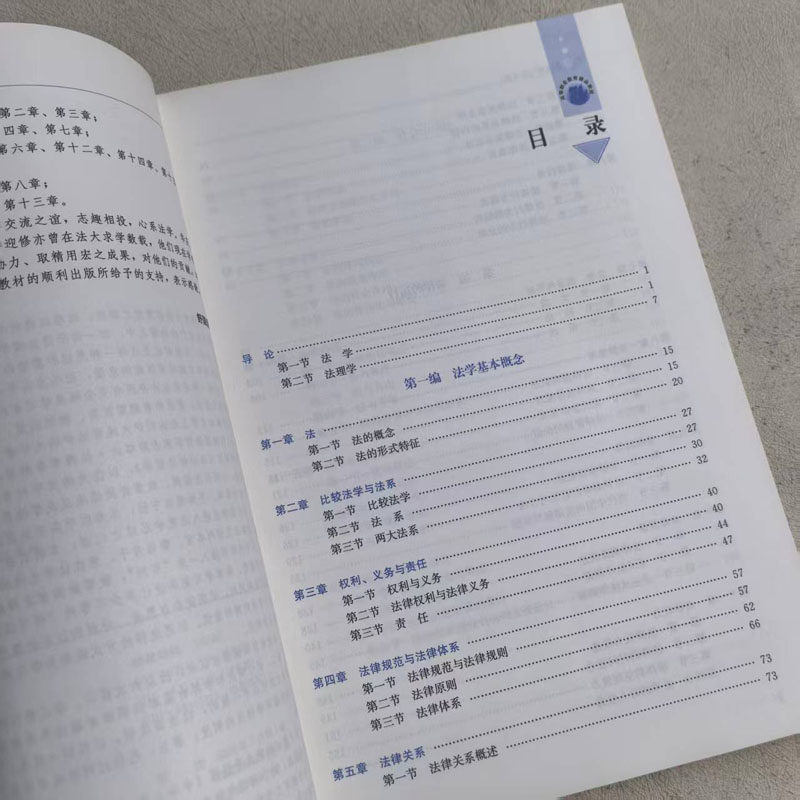 第二章、第三章；
四章、第七章；
第六章、第十二章、第十四章、第十
第八章；
第十三章。
交流之谊，志趣相投，心系法学，
迎修亦曾在法大求学数载，他们现在
协力、取精用宏之成果，对他们的贡献，
教材的顺利出版所给予的支持，表示
目 录
导 论 1
第一节 法 学 1
第二节 法理学 7
第一编 法学基本概念
第一章 法 15
第一节 法的概念 15
第二节 法的形式特征 20
第二章 比较法学与法系 27
第一节 比较法学 27
第二节 法 系 30
第三节 两大法系 32
第三章 权利、义务与责任 40
第一节 权利与义务 40
第二节 法律权利与法律义务 44
第三节 责 任 47
第四章 法律规范与法律体系 57
第一节 法律规范与法律规则 57
第二节 法律原则 62
第三节 法律体系 66
第五章 法律关系 73
第一节 法律关系概述 73